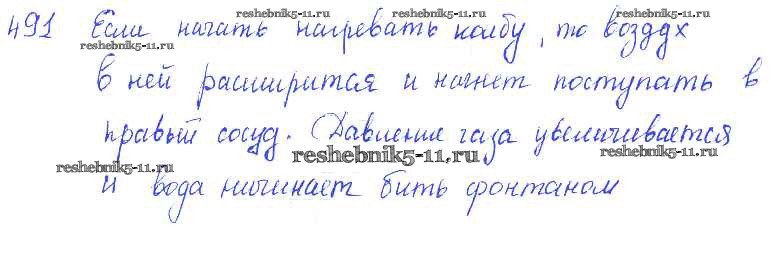 reshebnik5-11.ru reshebnik5-11.ru reshebnik5-11.ru
491 Если начать нагревать колбу, то воздух
reshebnik5-11.ru
в ней расширится и начнет поступать в
правый сосуд. Давление газа увеличивается
reshebnik5-11.ru reshebnik5-11.ru reshebnik5-11.ru
и вода начинает бить фонтаном